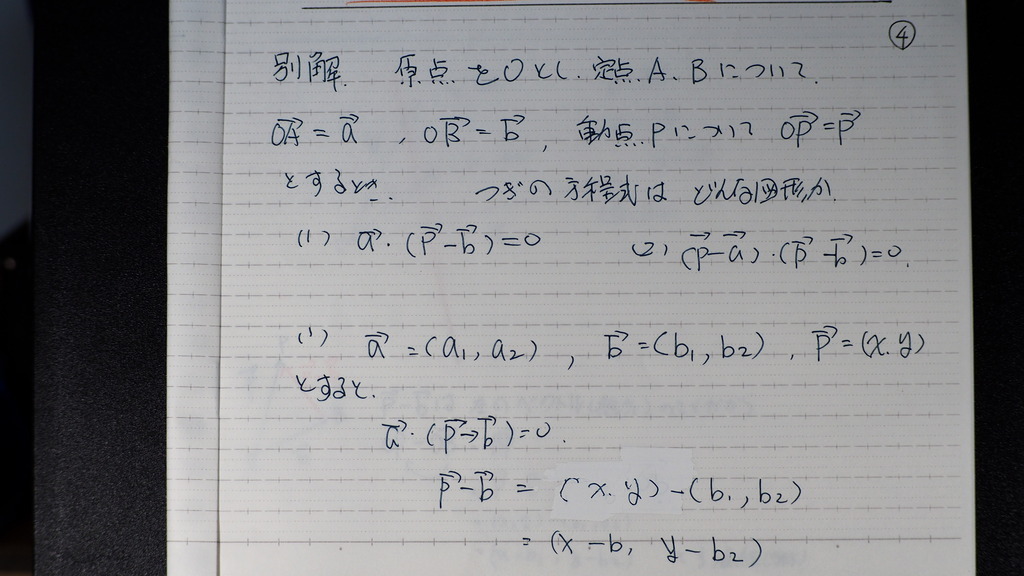 ④
別解. 原点をOとし. 定点A、Bについて.
$\overrightarrow{OA} = \vec{a}$ , $\overrightarrow{OB} = \vec{b}$ , 動点Pについて $\overrightarrow{OP} = \vec{p}$
とするとき. つぎの方程式はどんな図形か.
(1) $\vec{a} \cdot (\vec{p} - \vec{b}) = 0$ (2) $(\vec{p} - \vec{a}) \cdot (\vec{p} - \vec{b}) = 0$.
(1) $\vec{a} = (a_1, a_2)$ , $\vec{b} = (b_1, b_2)$ , $\vec{p} = (x. y)$
とすると.
$\vec{a} \cdot (\vec{p} - \vec{b}) = 0$.
$\vec{p} - \vec{b} = (x. y) - (b_1, b_2)$
$= (x - b, y - b_2)$